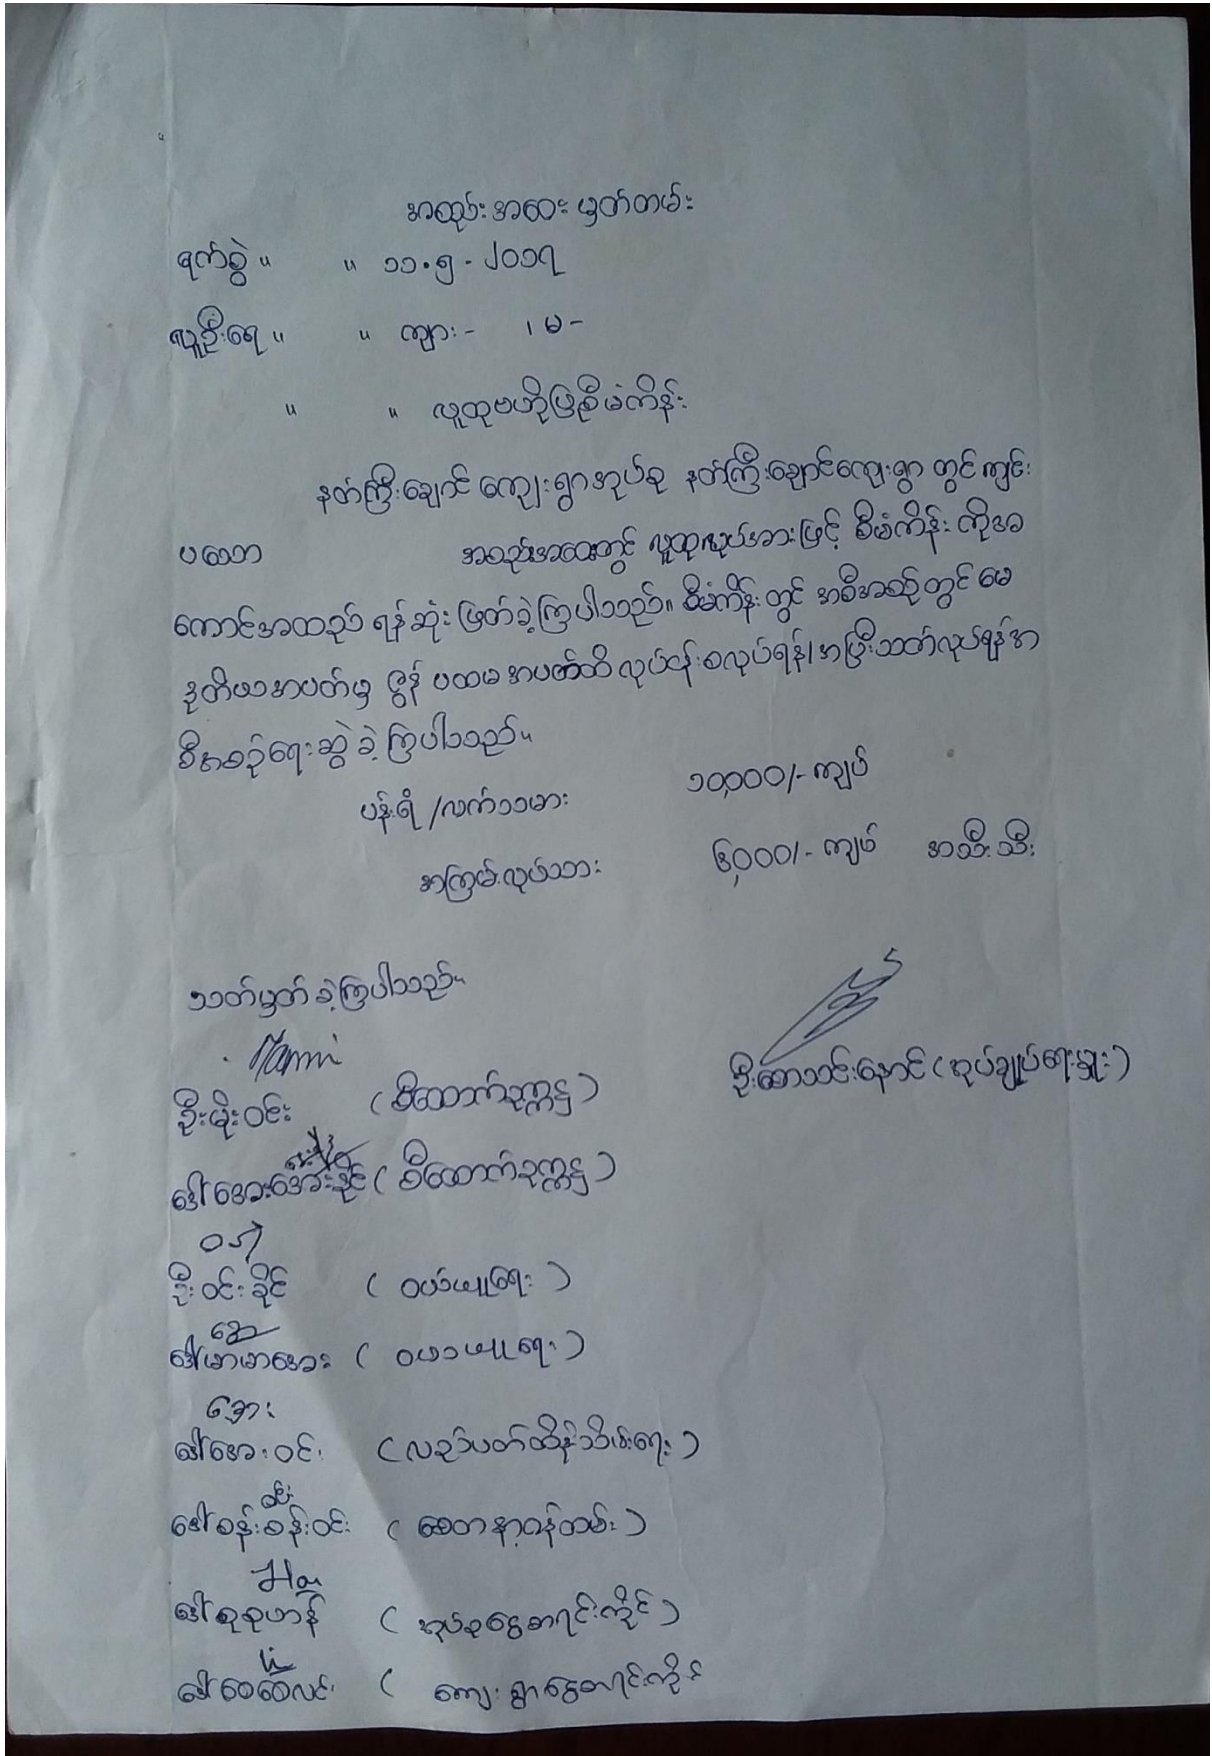 အစည်းအဝေး မှတ်တမ်း
ရက်စွဲ ။ ။ ၁၁.၅-၂၀၁၇
လူဦးရေ ။ ။ ကျား- ၊ မ-
။ ။ လူထုဗဟိုပြုစီမံကိန်း
နတ်ကြီးချောင် ကျေးရွာအုပ်စု နတ်ကြီးချောင်ကျေးရွာ တွင် ကျင်း
ပသော အစည်းအဝေးတွင် လူထုလုပ်အားဖြင့် စီမံကိန်း ကိုအ
ကောင်အထည် ရန်ဆုံး ဖြတ်ခဲ့ကြပါသည်။ စီမံကိန်း တွင် အစီအစဉ်တွင် မေ
ဒုတိယအပတ်မှ ဇွန် ပထမ အပတ်ထိ လုပ်ငန်းစလုပ်ရန်၊ အပြီးသတ်လုပ်ရန်အ
စီအစဉ်ရေးဆွဲ ခဲ့ကြပါသည်။
ပန်းရံ /လက်သမား ၁၀,၀၀၀/- ကျပ်
အကြမ်းလုပ်သား ၆,၀၀၀/- ကျပ် အသီးသီး
သတ်မှတ် ခဲ့ကြပါသည်။
ဦးမိုးဝင်း (စီထောက်ဥက္ကဋ္ဌ) ဦးစောသင်းနောင် (အုပ်ချုပ်ရေးမှူး)
ဒေါ်အေးအေးခိုင် (စီထောက်ဥက္ကဋ္ဌ)
ဦးဝင်းခိုင် (ဝယ်ယူရေး)
ဒေါ်မာမာအေး (ဝယ်ယူရေး)
အေး
ဒေါ်အေးဝင်း (လည်ပတ်ထိန်းသိမ်းရေး)
ဒေါ်စန်းစန်းဝင်း (စေတနာ့ဝန်ထမ်း)
ဒေါ်စုစုဟန် (အုပ်စုငွေစာရင်းကိုင်)
ဒေါ်ဝေဝေလင်း ( ကျေးရွာငွေစာရင်းကိုင်